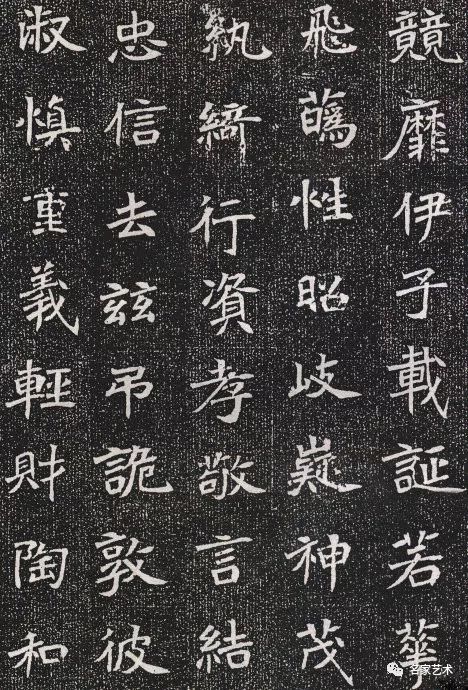 競靡伊子載誕若華
飛性昭岐嶷神茂
紈綺行資孝敬言結
忠信去茲吊詭敦彼
淑慎重義輕財陶和
名家艺术